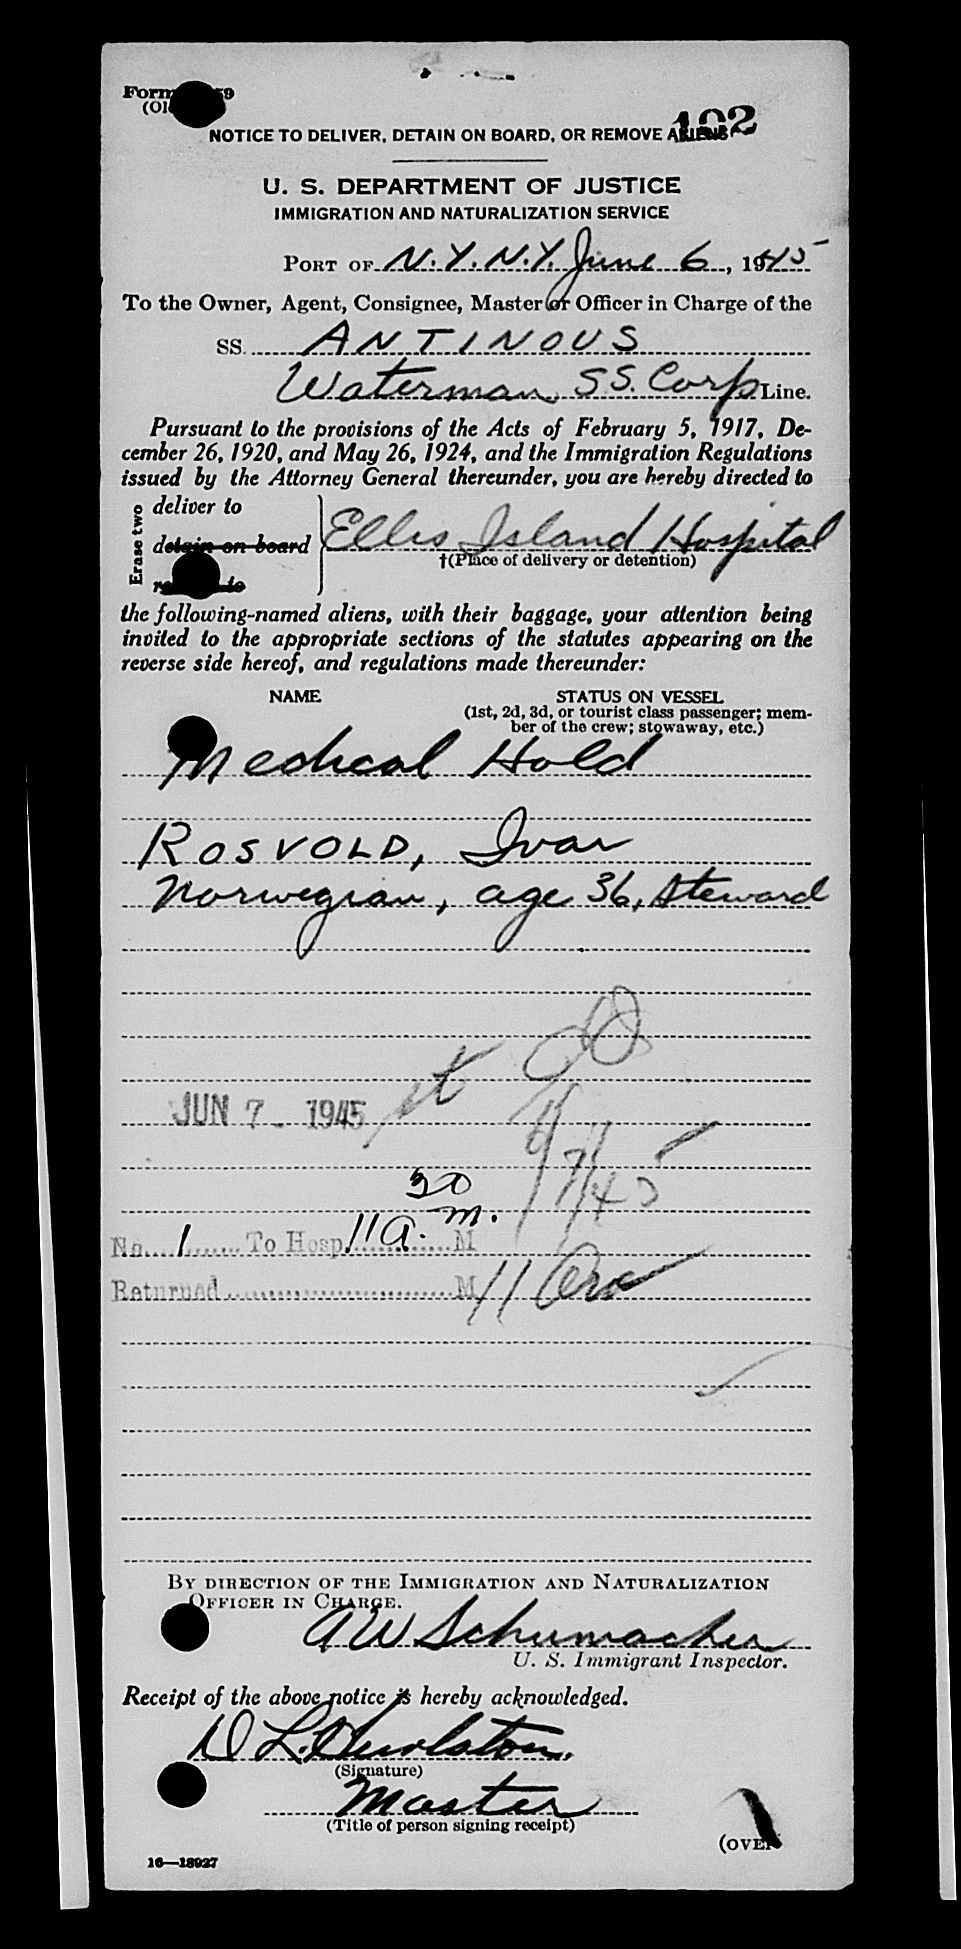 192
NOTICE TO DELIVER, DETAIN ON BOARD, OR REMOVE ALIENS
U. S. DEPARTMENT OF JUSTICE
IMMIGRATION AND NATURALIZATION SERVICE
PORT OF N.Y. N.Y. June 6, 1945
To the Owner, Agent, Consignee, Master or Officer in Charge of the
SS. ANTINOUS
Waterman S.S. Corp Line.
Pursuant to the provisions of the Acts of February 5, 1917, De-
cember 26, 1920, and May 26, 1924, and the Immigration Regulations
issued by the Attorney General thereunder, you are hereby directed to
Erase two
deliver to
detain on board
Ellis Island Hospital
†(Place of delivery or detention)
the following-named aliens, with their baggage, your attention being
invited to the appropriate sections of the statutes appearing on the
reverse side hereof, and regulations made thereunder:
NAME STATUS ON VESSEL
(1st, 2d, 3d, or tourist class passenger; mem-
ber of the crew; stowaway, etc.)
Medical Hold
ROSVOLD, Ivar
Norwegian, age 36, Steward
JUN 7 - 1945
6/7/45
No. 1 To Hosp. 11 30 a.m. M
Returned M 11
BY DIRECTION OF THE IMMIGRATION AND NATURALIZATION
OFFICER IN CHARGE.
A W Schumacher
U. S. Immigrant Inspector.
Receipt of the above notice is hereby acknowledged.
D L.
(Signature)
Master
(Title of person signing receipt)
(OVER
16—18927